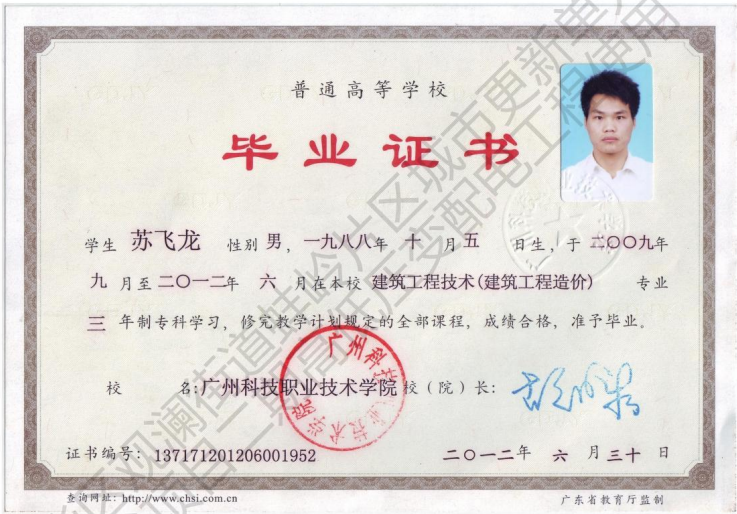 普通高等学校
毕业证书
学生 苏飞龙 性别 男，一九八八年 十 月 五 日生，于 二〇〇九年
九 月至 二〇一二年 六 月在本校 建筑工程技术(建筑工程造价) 专业
三 年制专科学习，修完教学计划规定的全部课程，成绩合格，准予毕业。
校 名:广州科技职业技术学院 校（院）长:
广州科技职业技术学院
证书编号: 137171201206001952 二〇一二年 六 月三十 日
查询网址: http://www.chsi.com.cn 广东省教育厅监制
观澜街道桂岭片区城市更新单元
二期高低压变配电工程使用